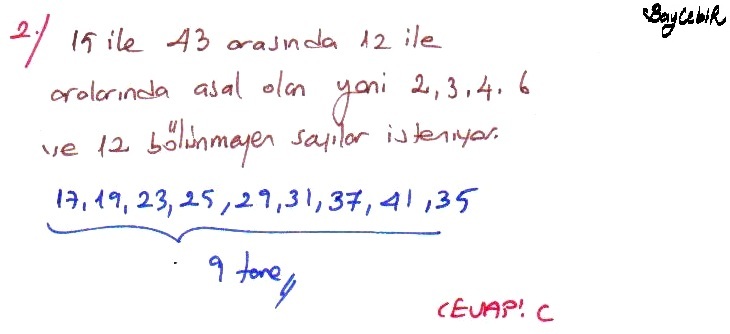 BayCebiR
2.) 15 ile 43 arasında 12 ile
aralarında asal olan yani 2,3,4.6
ve 12 bölünmeyen sayılar isteniyor.
17,19,23,25,29,31,37,41,35
9 tane
CEVAP: C